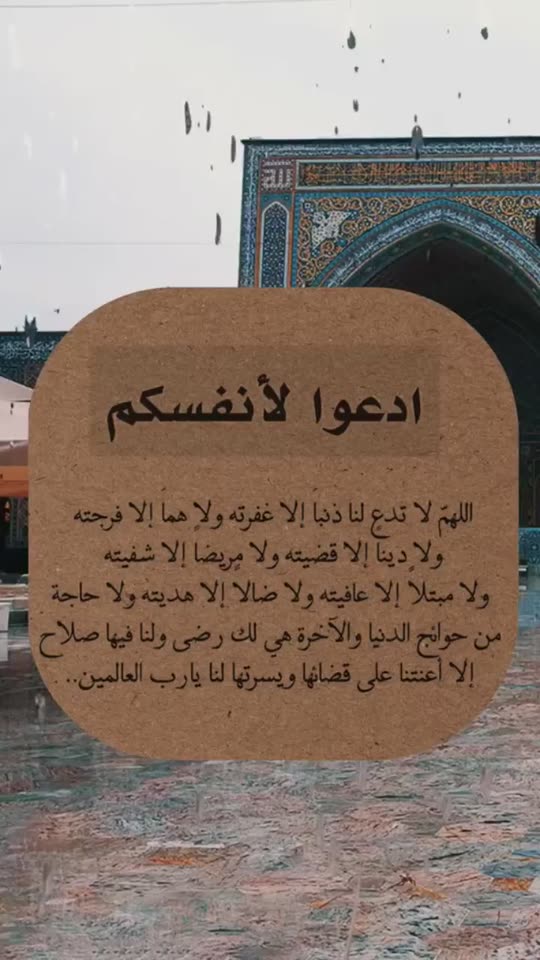 ادعوا لأنفسكم
اللهمّ لا تدع لنا ذنباً إلا غفرته ولا هماً إلا فرجته
ولا ديناً إلا قضيته ولا مريضا إلا شفيته
ولا مبتلا إلا عافيته ولا ضالا إلا هديته ولا حاجة
من حوائج الدنيا والآخرة هي لك رضى ولنا فيها صلاح
إلا أعنتنا على قضائها ويسرتها لنا يارب العالمين..
الله